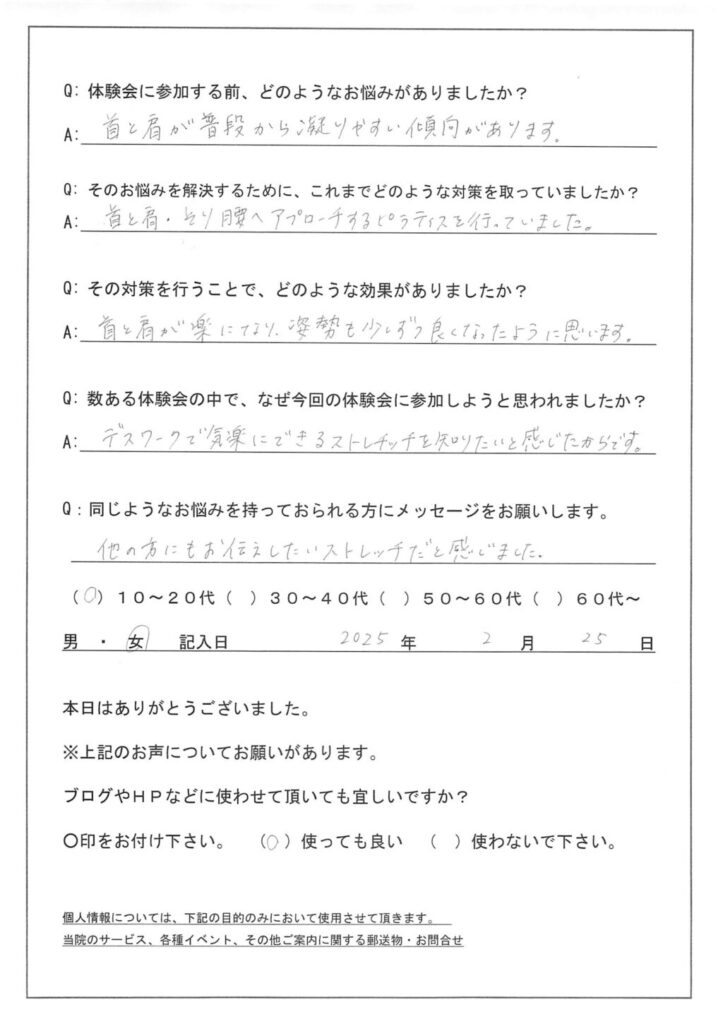 Q: 体験会に参加する前、どのようなお悩みがありましたか？
A: 首と肩が普段から凝りやすい傾向があります。
Q: そのお悩みを解決するために、これまでどのような対策を取っていましたか？
A: 首と肩・そり腰へアプローチするピラティスを行っていました。
Q: その対策を行うことで、どのような効果がありましたか？
A: 首と肩が楽になり、姿勢も少しずつ良くなったように思います。
Q: 数ある体験会の中で、なぜ今回の体験会に参加しようと思われましたか？
A: デスワークで気楽にできるストレチッチを知りたいと感じたからです。
Q：同じようなお悩みを持っておられる方にメッセージをお願いします。
他の方にもお伝えしたいストレッチだと感じました.
（○）１０～２０代（　）３０～４０代（　）５０～６０代（　）６０代～
男　・　女　　記入日　2025 年　2 月　25 日
本日はありがとうございました。
※上記のお声についてお願いがあります。
ブログやＨＰなどに使わせて頂いても宜しいですか？
〇印をお付け下さい。　（○）使っても良い　（　）使わないで下さい。
個人情報については、下記の目的のみにおいて使用させて頂きます。
当院のサービス、各種イベント、その他ご案内に関する郵送物・お問合せ